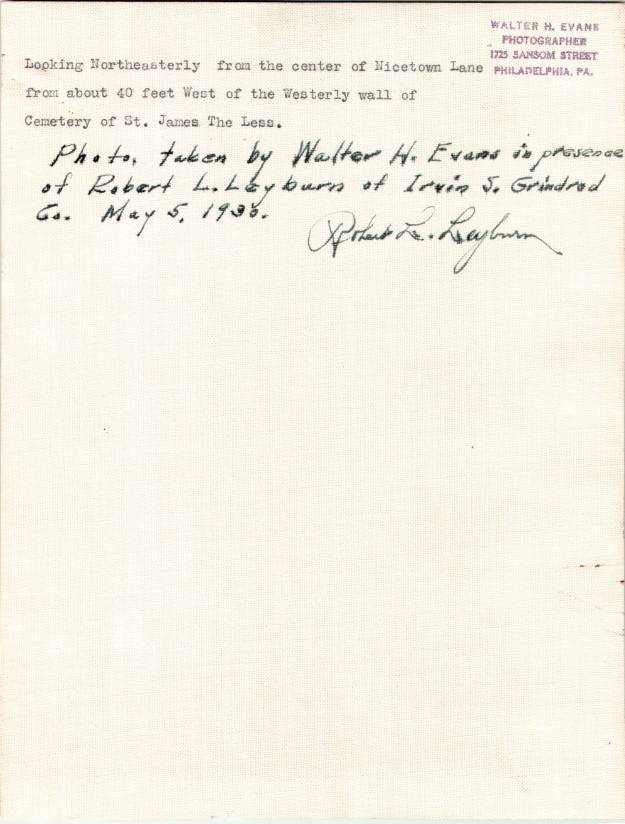 WALTER H. EVANS
PHOTOGRAPHER
1725 SANSOM STREET
PHILADELPHIA, PA.
Looking Northeasterly from the center of Nicetown Lane
from about 40 feet West of the Westerly wall of
Cemetery of St. James The Less.
Photo, taken by Walter H. Evans in presence
of Robert L. Leyburn of Irvin S. Grindrod
Co. May 5,
Robert L. Leyburn